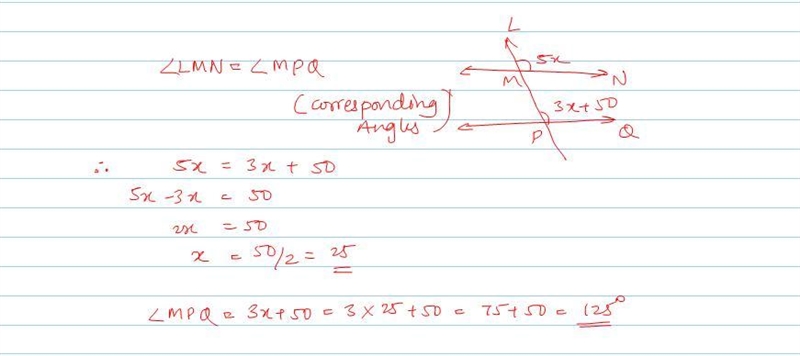 L
5x
∠LMN = ∠MPQ
M
N
(corresponding
Angles)
3x+50
P
Q
∴ 5x = 3x + 50
5x - 3x = 50
2x = 50
x = 50/2 = 25
∠MPQ = 3x+50 = 3 × 25 + 50 = 75+50 = 125°